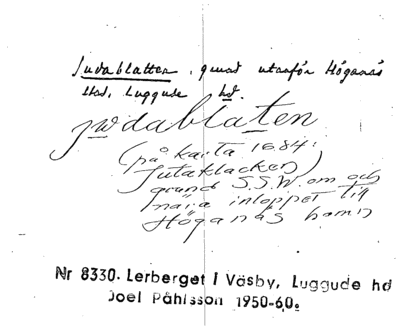 Judablatten, grund utanför Höganäs
stad, Luggude hd.
judablaten
(på karta 1684:
Jutaklacken)
grund S.S.W. om och
nära inloppet till
Höganäs hamn
Nr 8330. Lerberget i Väsby, Luggude hd
Joel Påhlsson 1950-60.